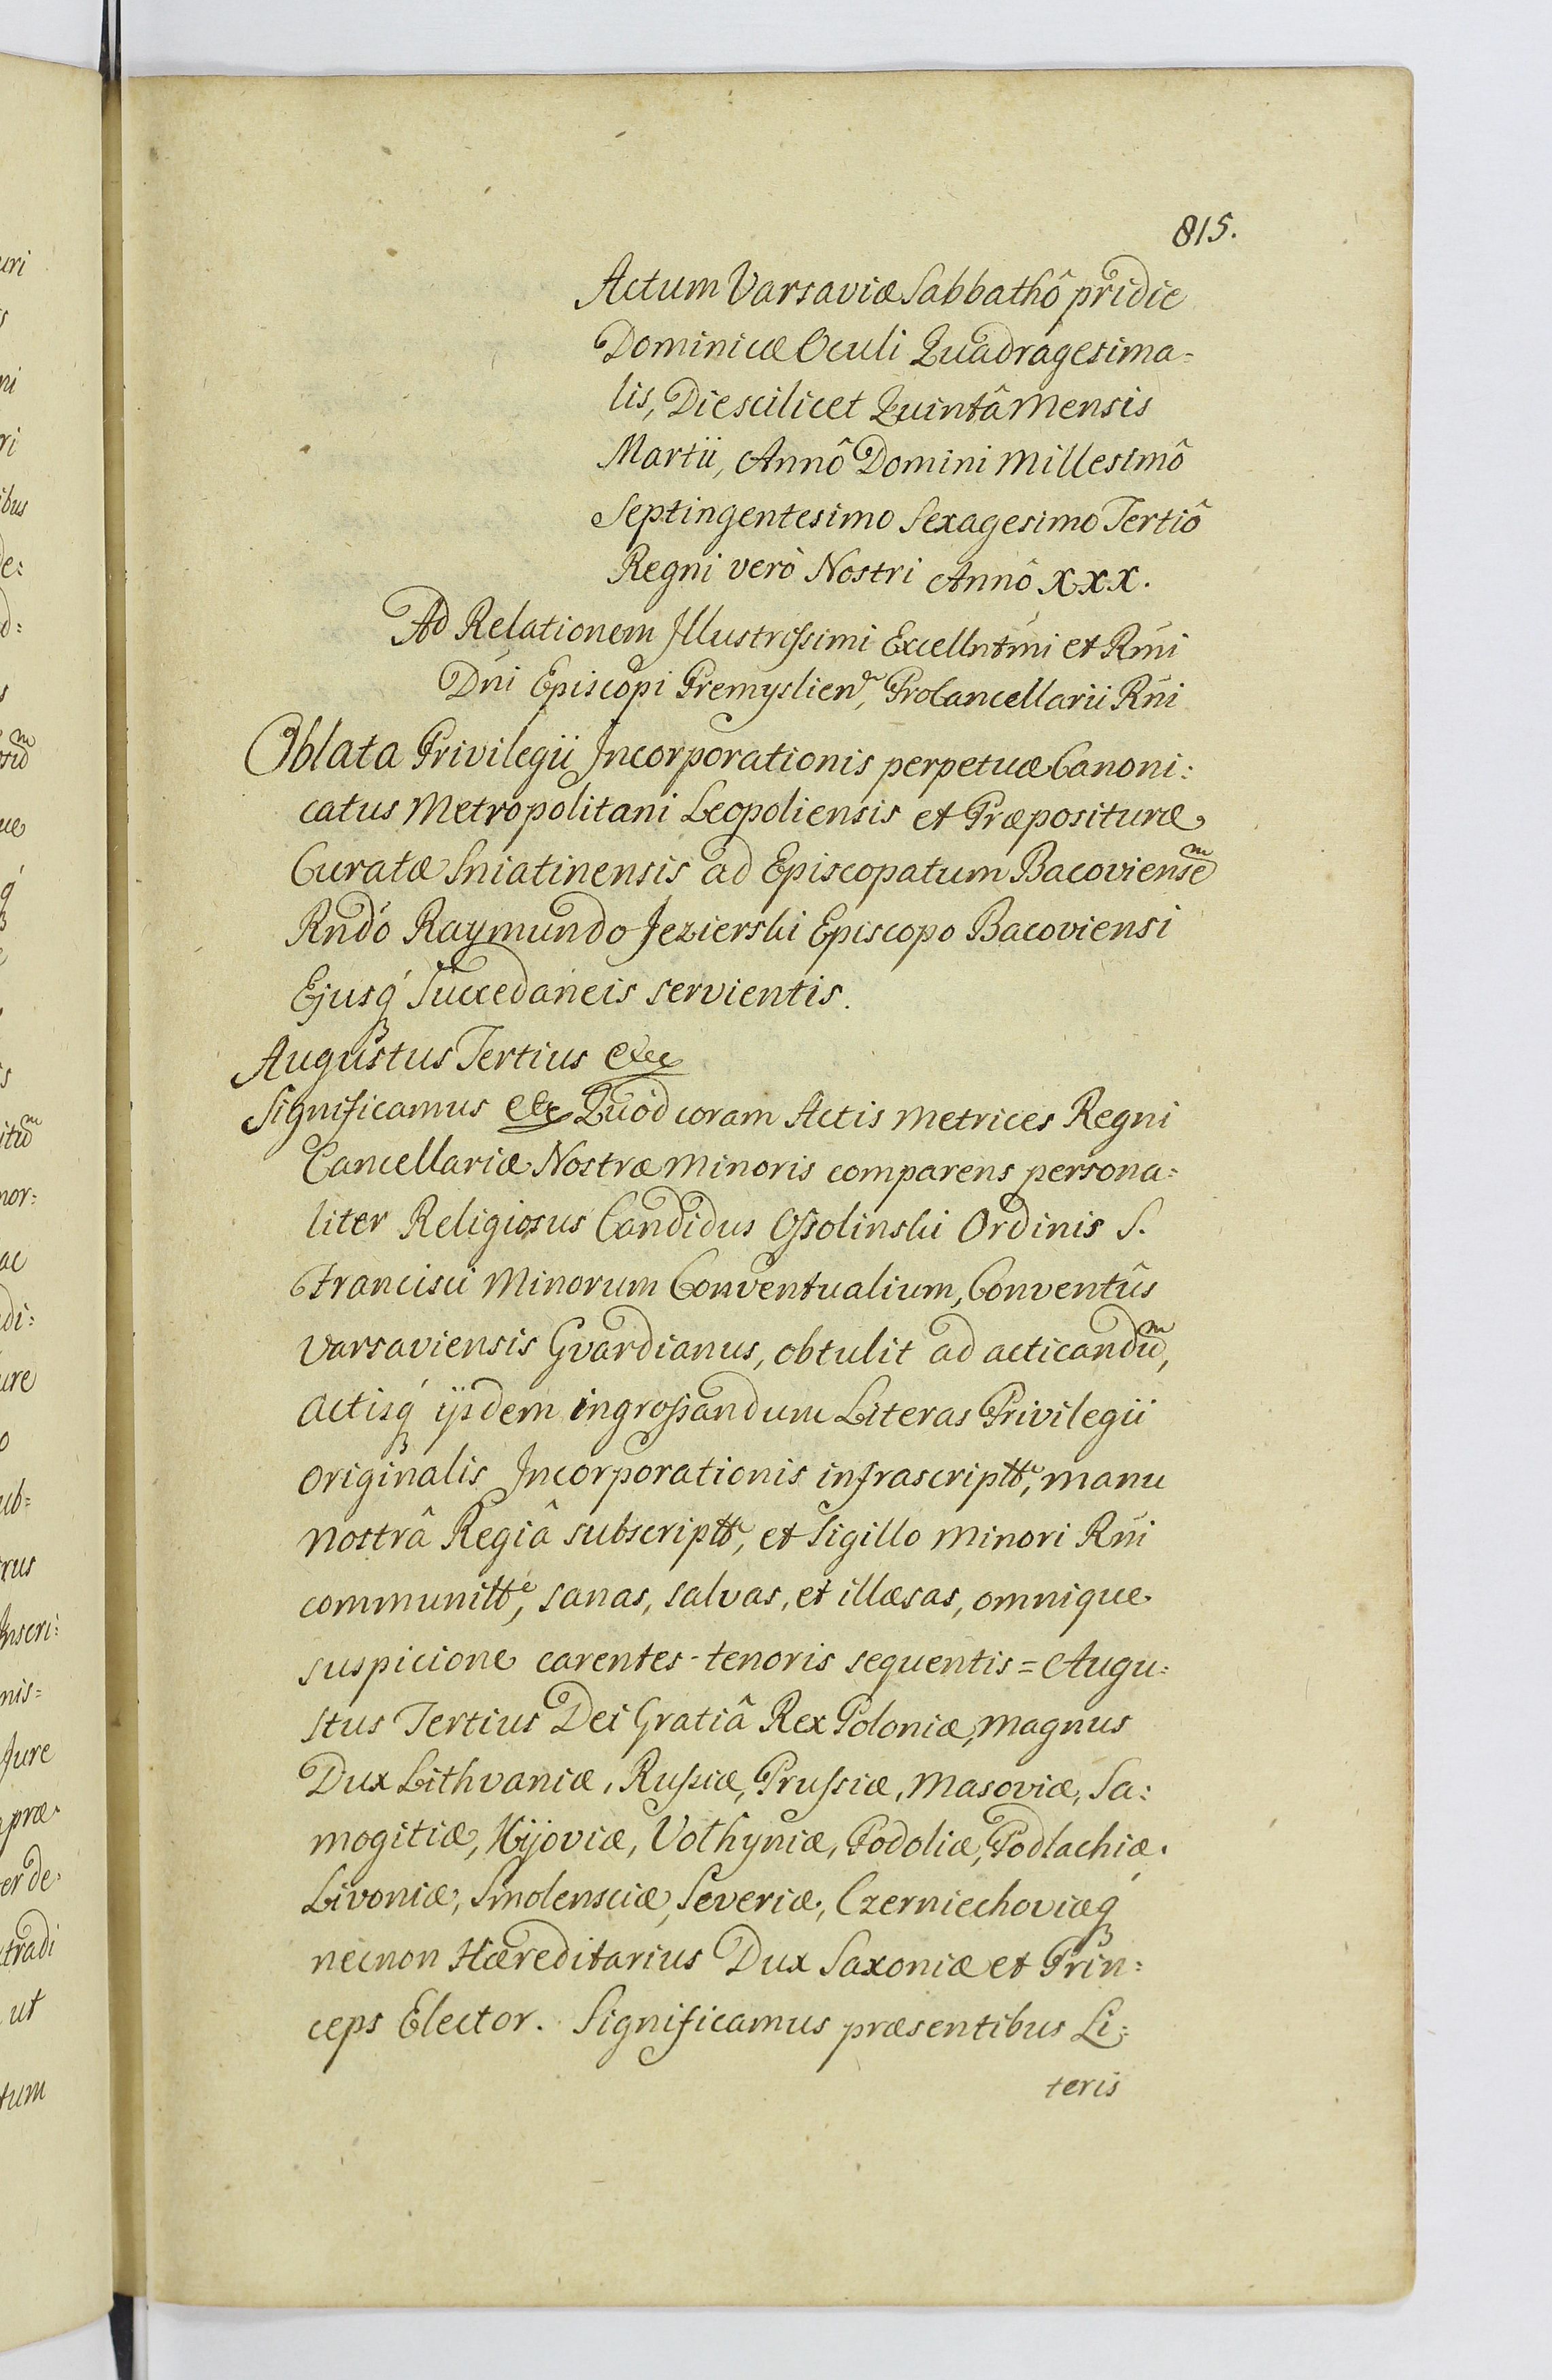 815.
Actum Varsaviæ Sabbathô pridie
Dominicæ Oculi Quadragesima=
lis, Die scilicet Quintâ Mensis
Martii, Annô Domini Millesimô
Septingentesimo Sexagesimo Tertiô
Regni verò Nostri Annô XXX.
Ad Relationem Illustrissimi Excellntmi et Rmi
Dni Episcopi Premyslien, ProCancellarii Rni
Oblata Privilegii Incorporationis perpetuæ Canoni:
catus Metropolitani Leopoliensis et Præposituræ
Curatæ Sniatinensis ad Episcopatum Bacoviensem
Rndo Raymundo Jezierski Episcopo Bacoviensi
Ejusq́ Succedaneis servientis.
Augustus Tertius etc
Significamus etc Quod coram Actis Metrices Regni
Cancellariæ Nostræ Minoris comparens persona=
liter Religiosus Candidus Ossolinski Ordinis S.
Francisci Minorum Conventualium, Conventûs
Varsaviensis Gvardianus, obtulit ad acticandum,
Actisq́ ijsdem ingrossandum Literas Privilegii
originalis Incorporationis infrascriptte, manu
nostrâ Regiâ subscriptte, et Sigillo minori Rni
communitte, sanas, salvas, et illæsas, omnique
suspicione carentes - tenoris sequentis = Augu=
stus Tertius Dei Gratiâ Rex Poloniæ, Magnus
Dux Lithvaniæ, Russiæ, Prussiæ, Masoviæ, Sa:
mogitiæ, Kijoviæ, Volhyniæ, Podoliæ, Podlachiæ.
Livoniæ, Smolensciæ, Severiæ, Czerniechoviæq́
necnon Hæreditarius Dux Saxoniæ et Prin=
ceps Elector. Significamus præsentibus Li=
teris